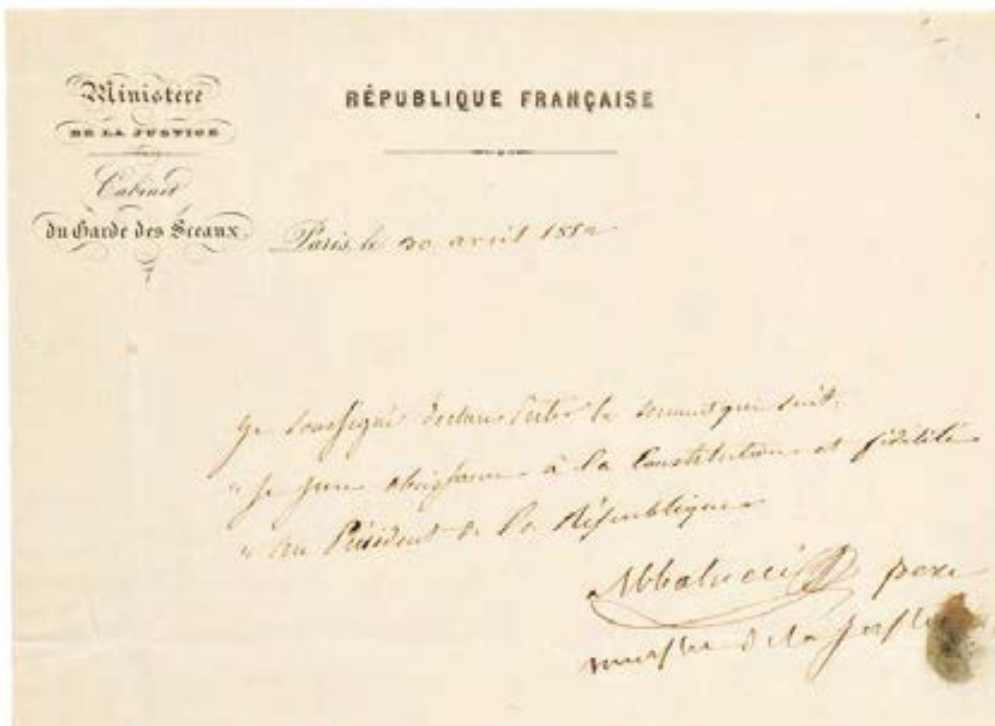 Ministère
DE LA JUSTICE
Cabinet
du Garde des Sceaux
RÉPUBLIQUE FRANÇAISE
Paris, le 30 avril 1852
Je soussigné déclare prêter le serment qui suit.
" Je jure obéissance à la Constitution et fidélité
" au Président de la République
Abbatucci père
ministre de la justice